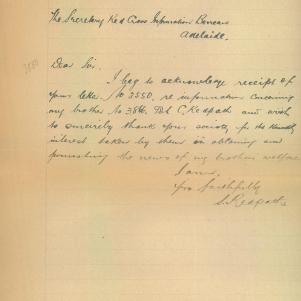 The Secretary Red Cross Information Bureau
Adelaide.
Dear Sir.
I beg to acknowledge receipt of
your letter No 3550, re information concerning
my brother No 386 Pvt C. Redpath and wish
to sincerely thank your society for the kindly
interest taken by them in obtaining and
furnishing the news of my brothers welfare
I am.
yrs faithfully
S. Redpath